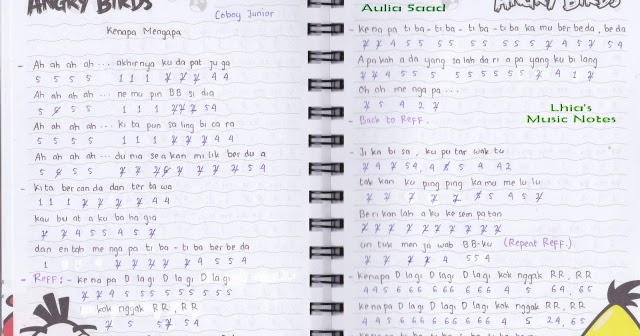 ANGRY BIRDS
Coboy Junior
Kenapa Mengapa
- Ah ah ah ah ... akhirnya ku da pat ju ga
5 5 5 5 1 1 1 7 7 7 4 4
Ah ah ah ah ... ne mu pin BB si dia
5 5 5 5 1 1 1 7 7 7 5 4
Ah ah ah ah ... ki ta pun sa ling bi ca ra
5 5 5 5 1 1 1 7 7 7 4 4
Ah ah ah ah ... du nia se a kan mi lik ber du a
5 5 5 5
- Kita ber can da dan ter ta wa
1 1 1 7 7 7 7 4 4
kau bu at a ku ba ha gia
7 7 4 5 5 4 5 7
dan en tah me nga pa ti ba - ti ba ber be da
1 7 7 7 7 7 4 5 5 4
- Reff : - ke na pa D lagi D lagi D lagi
7 7 4 5 5 5 5 5 5 5 5 5
kok nggak RR, RR
7 5 5 7 5 4
Aulia Saad
ANGRY BIRDS
- ke na pa ti ba - ti ba - ti ba - ti ba ka mu ber be da, be da
7 7 4 5 5 5 5 5 5 5 5 5 5 7 4 5 7 5 4
A pa kah a da yang sa lah da ri a pa yang ku bi lang
7 7 4 5 5 5 5 5 5 5 5 5 7 4 1 7
Oh oh me nga pa ...
7 5 4 2 7
- Back to Reff.
Lhia's
Music Notes
- Ji ka bi sa, ku pu tar wak tu
7 4 7 5 4, 4 5 4 4 2
tak kan ku ping ping ka mu me lu lu
Be ri kan lah a ku ke sem pa tan
7 7 7 7 7 7 7 7 7 7
un tuk men ja wab BB-ku (Repeat Reff.)
7 7 7 7 4 5 5 4
- kenapa D lagi D lagi D lagi kok nggak RR, RR
4 4 5 6 6 6 6 6 6 6 6 6 4 5 6 4, 6 5
kenapa D lagi D lagi D lagi kok nggak RR, RR
4 4 5 6 6 6 6 6 6 6 6 6 4 5 2 4, 6 5